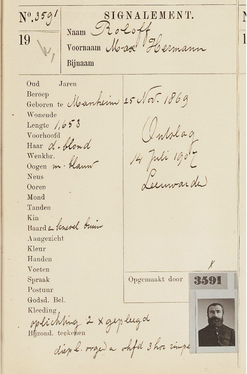 No. 3591
SIGNALEMENT.
19
Naam Roloff
Voornaam Max Hermann
Bijnaam
Oud Jaren
Beroep
Geboren te Manheim 25 Nov. 1869
Wonende
Lengte 1,653
Voorhoofd
Haar d-blond
Wenkbr.
Oogen m-blauw
Neus
Ooren
Mond
Tanden
Kin
Baard
Aangezicht
Kleur
Handen
Voeten
Spraak
Postuur
Godsd. Bel.
Kleeding
Ontslag
14 Juli
Leeuwarden
Opgemaakt door
3591
oplichting 2 x gepleegd
Bijzond. teekenen